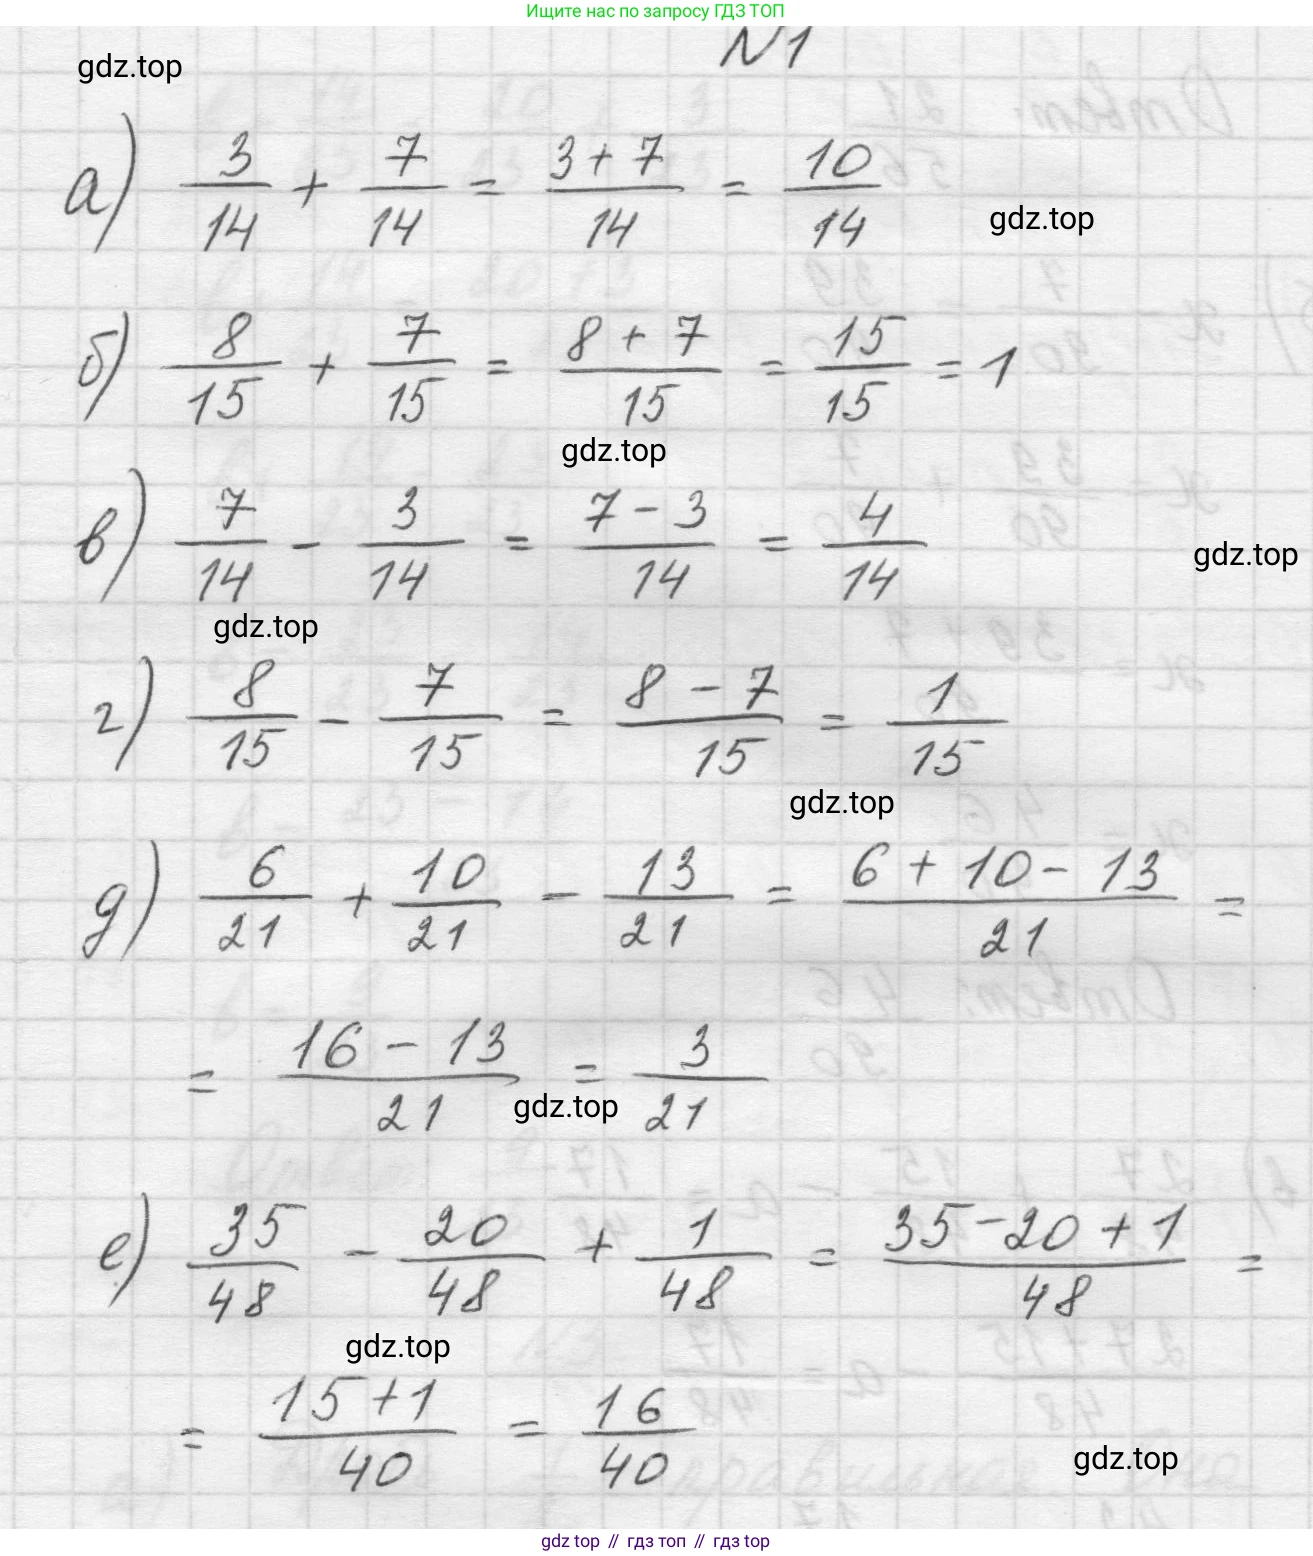 Ищите нас по запросу ГДЗ ТОП
N1
gdz.top
а) 3/14 + 7/14 = (3 + 7)/14 = 10/14
gdz.top
б) 8/15 + 7/15 = (8 + 7)/15 = 15/15 = 1
gdz.top
в) 7/14 - 3/14 = (7 - 3)/14 = 4/14
gdz.top
gdz.top
г) 8/15 - 7/15 = (8 - 7)/15 = 1/15
gdz.top
д) 6/21 + 10/21 - 13/21 = (6 + 10 - 13)/21 =
= (16 - 13)/21 = 3/21
gdz.top
е) 35/48 - 20/48 + 1/48 = (35 - 20 + 1)/48 =
gdz.top
= (15 + 1)/40 = 16/40
gdz.top
gdz top // гдз топ // гдз top